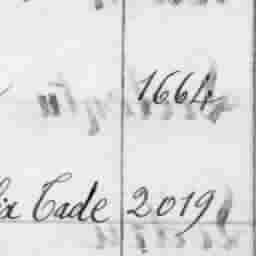 1664
Cade 2019